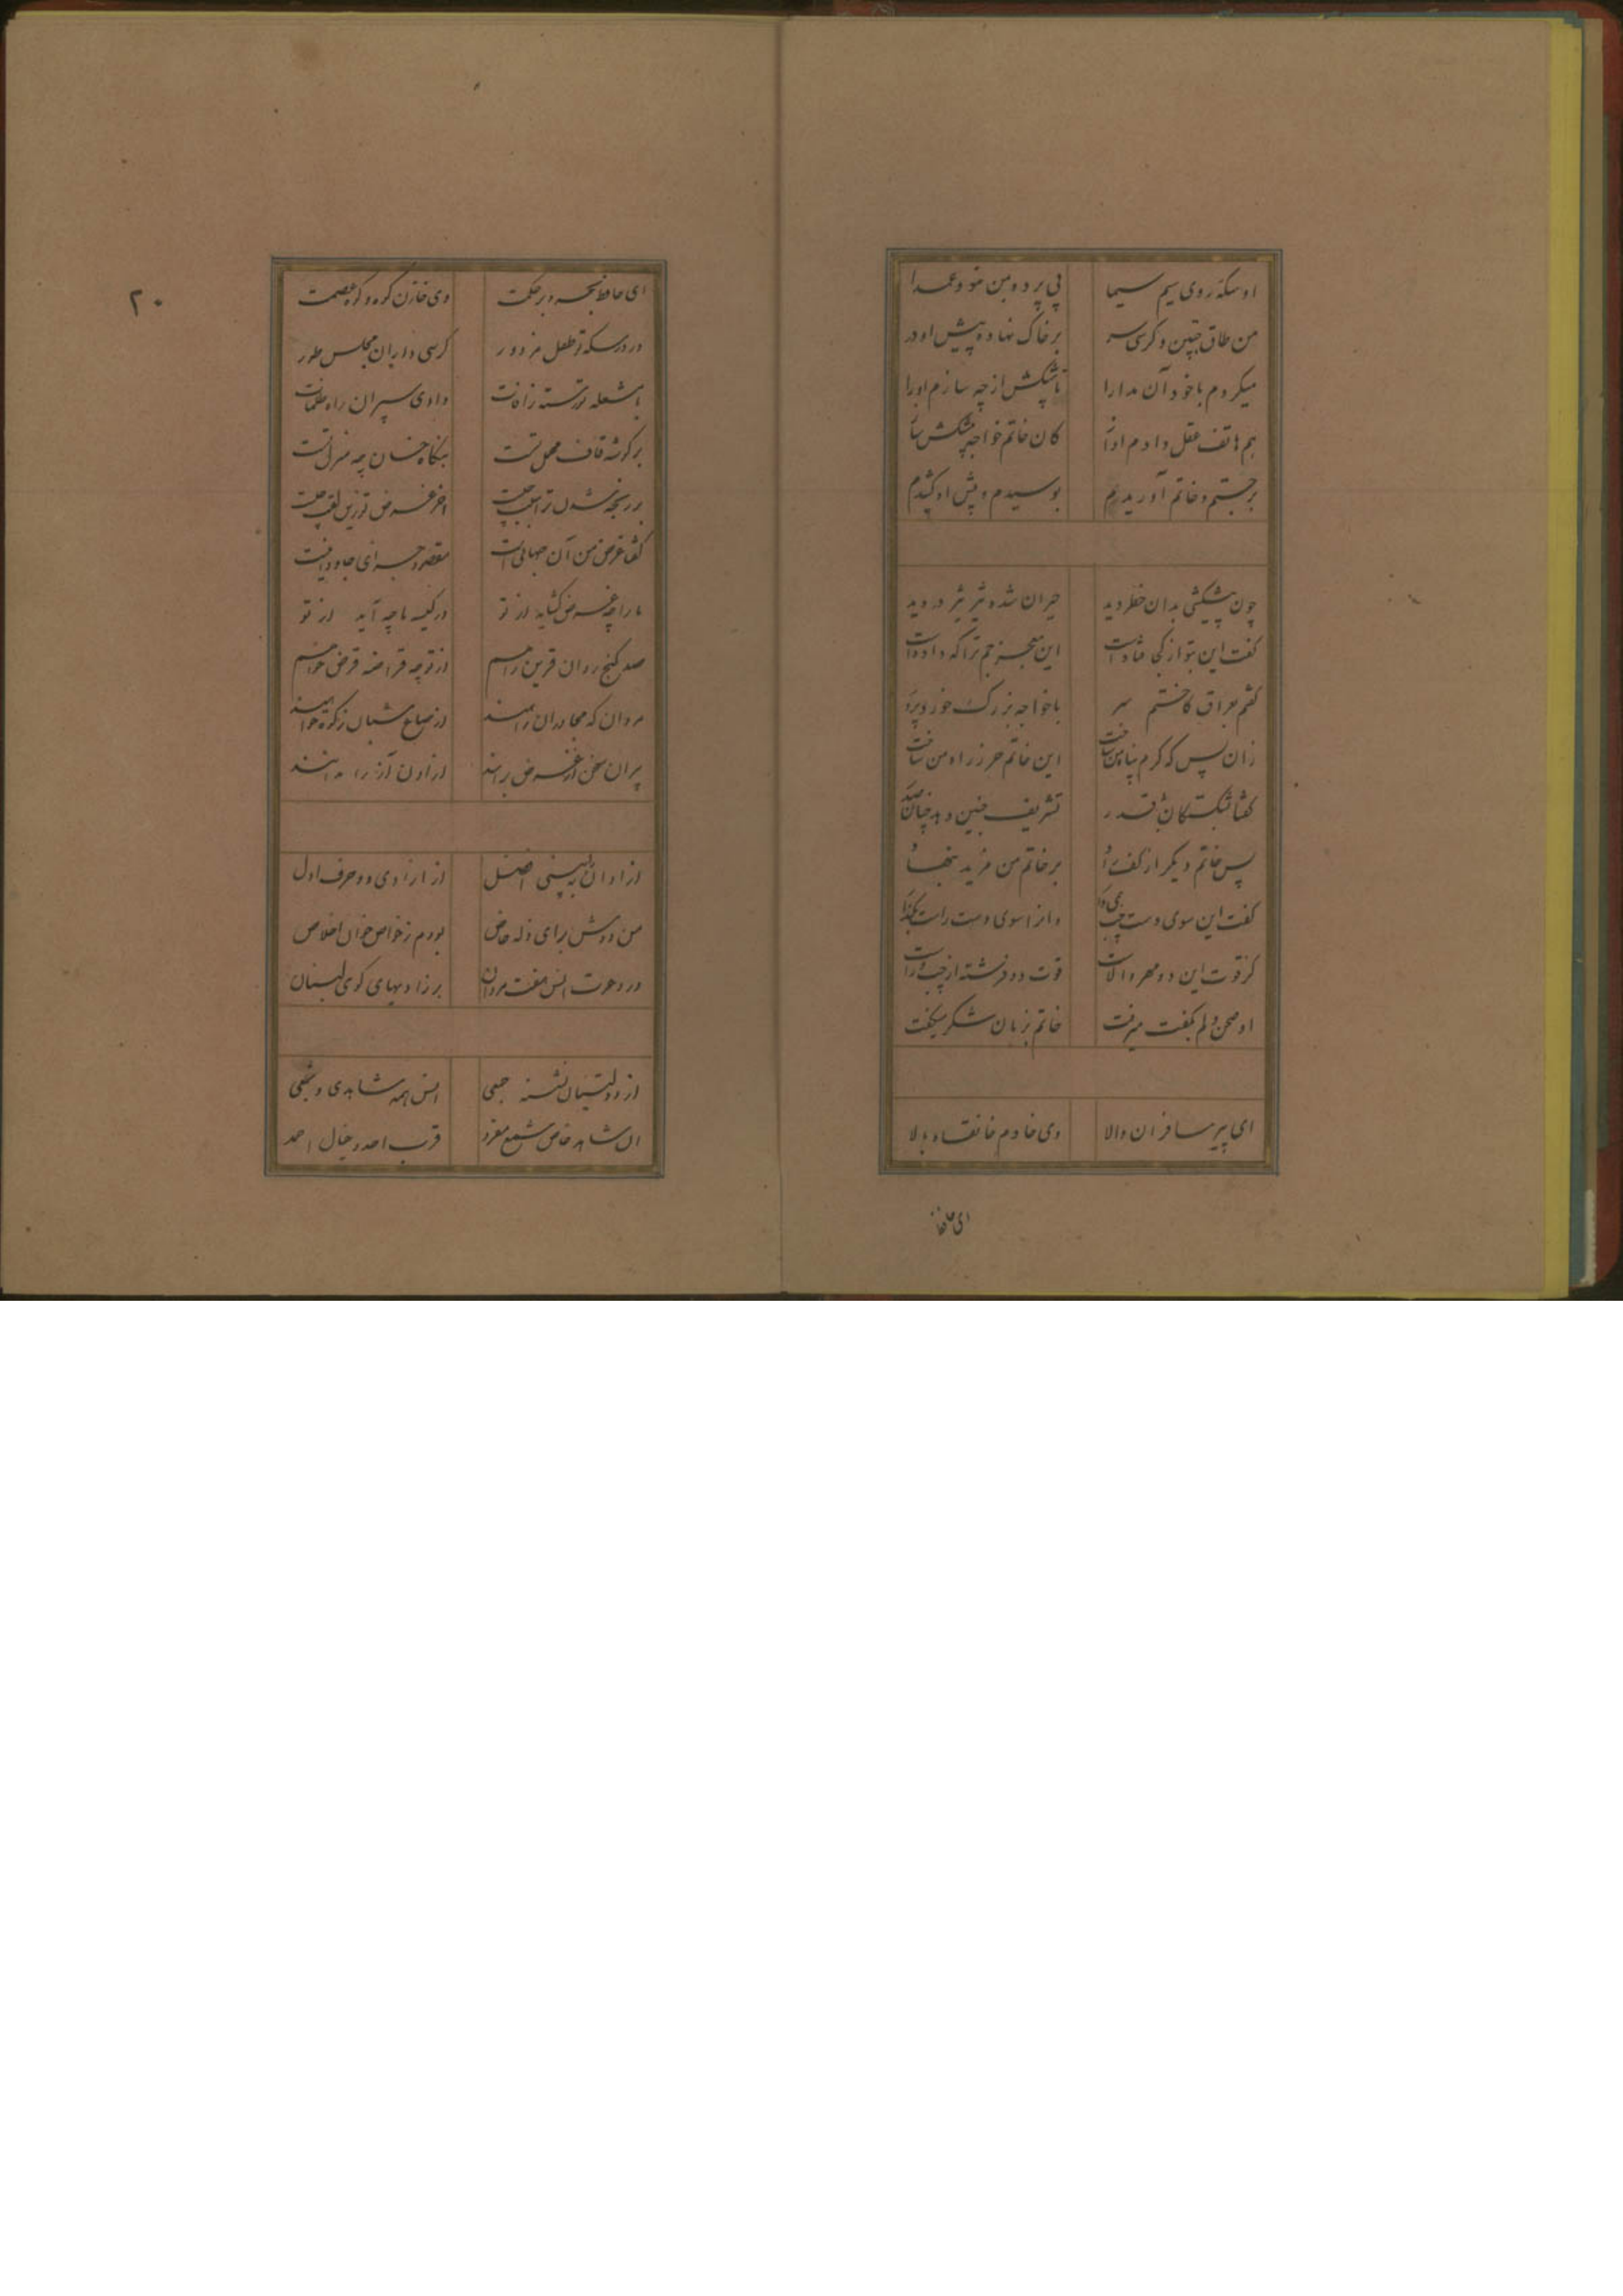 او سکه روی سیم سیما پی برده و من خود عمدا
من طاق جبین و کرسی سر بر خاک نهاده پیش او در
میکردم با خود آن مدارا تا پیشکش از چه سازم او را
هم هاتف عقل دادم آواز کان خاتم خواجه پیشکش ساز
برجستم و خاتم آوریدم بوسیدم و پیش او کشیدم
چون پیشکشی بدان خطر دید حیران شده تیز تیز در دید
کفت این بتو از کجا فتادست این معجز جم ترا که دادست
کفتم بعراق کاختم سر با خواجه بزرک خوردم بر
زان پس که کرم پناه من ساخت این خاتم حرز راه من ساخت
کفتا شکستکان قدر تشریف چنین دهد چنان صدر
پس خاتم دیکر از کف بر خاتم من مزید بنهاد
کفت این سوی دست چپ وانرا سوی دست راست بکذار
کز قوت این دو مهر والاست قوت دو فرشته از چپ و راست
او صحن دلم بکفت میرفت خاتم بزبان شکر میکفت
ای پیر مسافران والا وی خادم خانقاه بالا
ای حافظ
۲۰
ای حافظ بحر و بر حکمت وی خازن کوه و کوه عصمت
در درسکه تو طفل مزدور کرسی داران مجلس طور
با شعله تو رسته ز آفات وادی سپران راه ظلمات
بر کوشه قاف محمل تست بنکاه خسان چه منزل تست
بر رنجه شدن ترا سبب چیست آخر غرض تو زین لقب چیست
کفتا غرض من آن جهانی است مقصود جزای جاودانیست
ما را چه غرض کشاید از تو در کیسه ما چه آید از تو
صد کنج روان قرین رانیم از تو چه قراضه قرض خواهیم
مردان که مجاوران راهند از صاع شبان زکوة خواهند
پیران سخن از غرض نرانند
از آزادی دو حرف اول
من دوش برای زله خاص بودم ز خواص خوان اخلاص
در دعوت انس هفت مردان بر زاویهای کوی لبنان
از دولتیان نشسته جمعی انس همه شاهدی و شمعی
آن شاهد خاص شمع مفرد قرب احد و خیال احمد